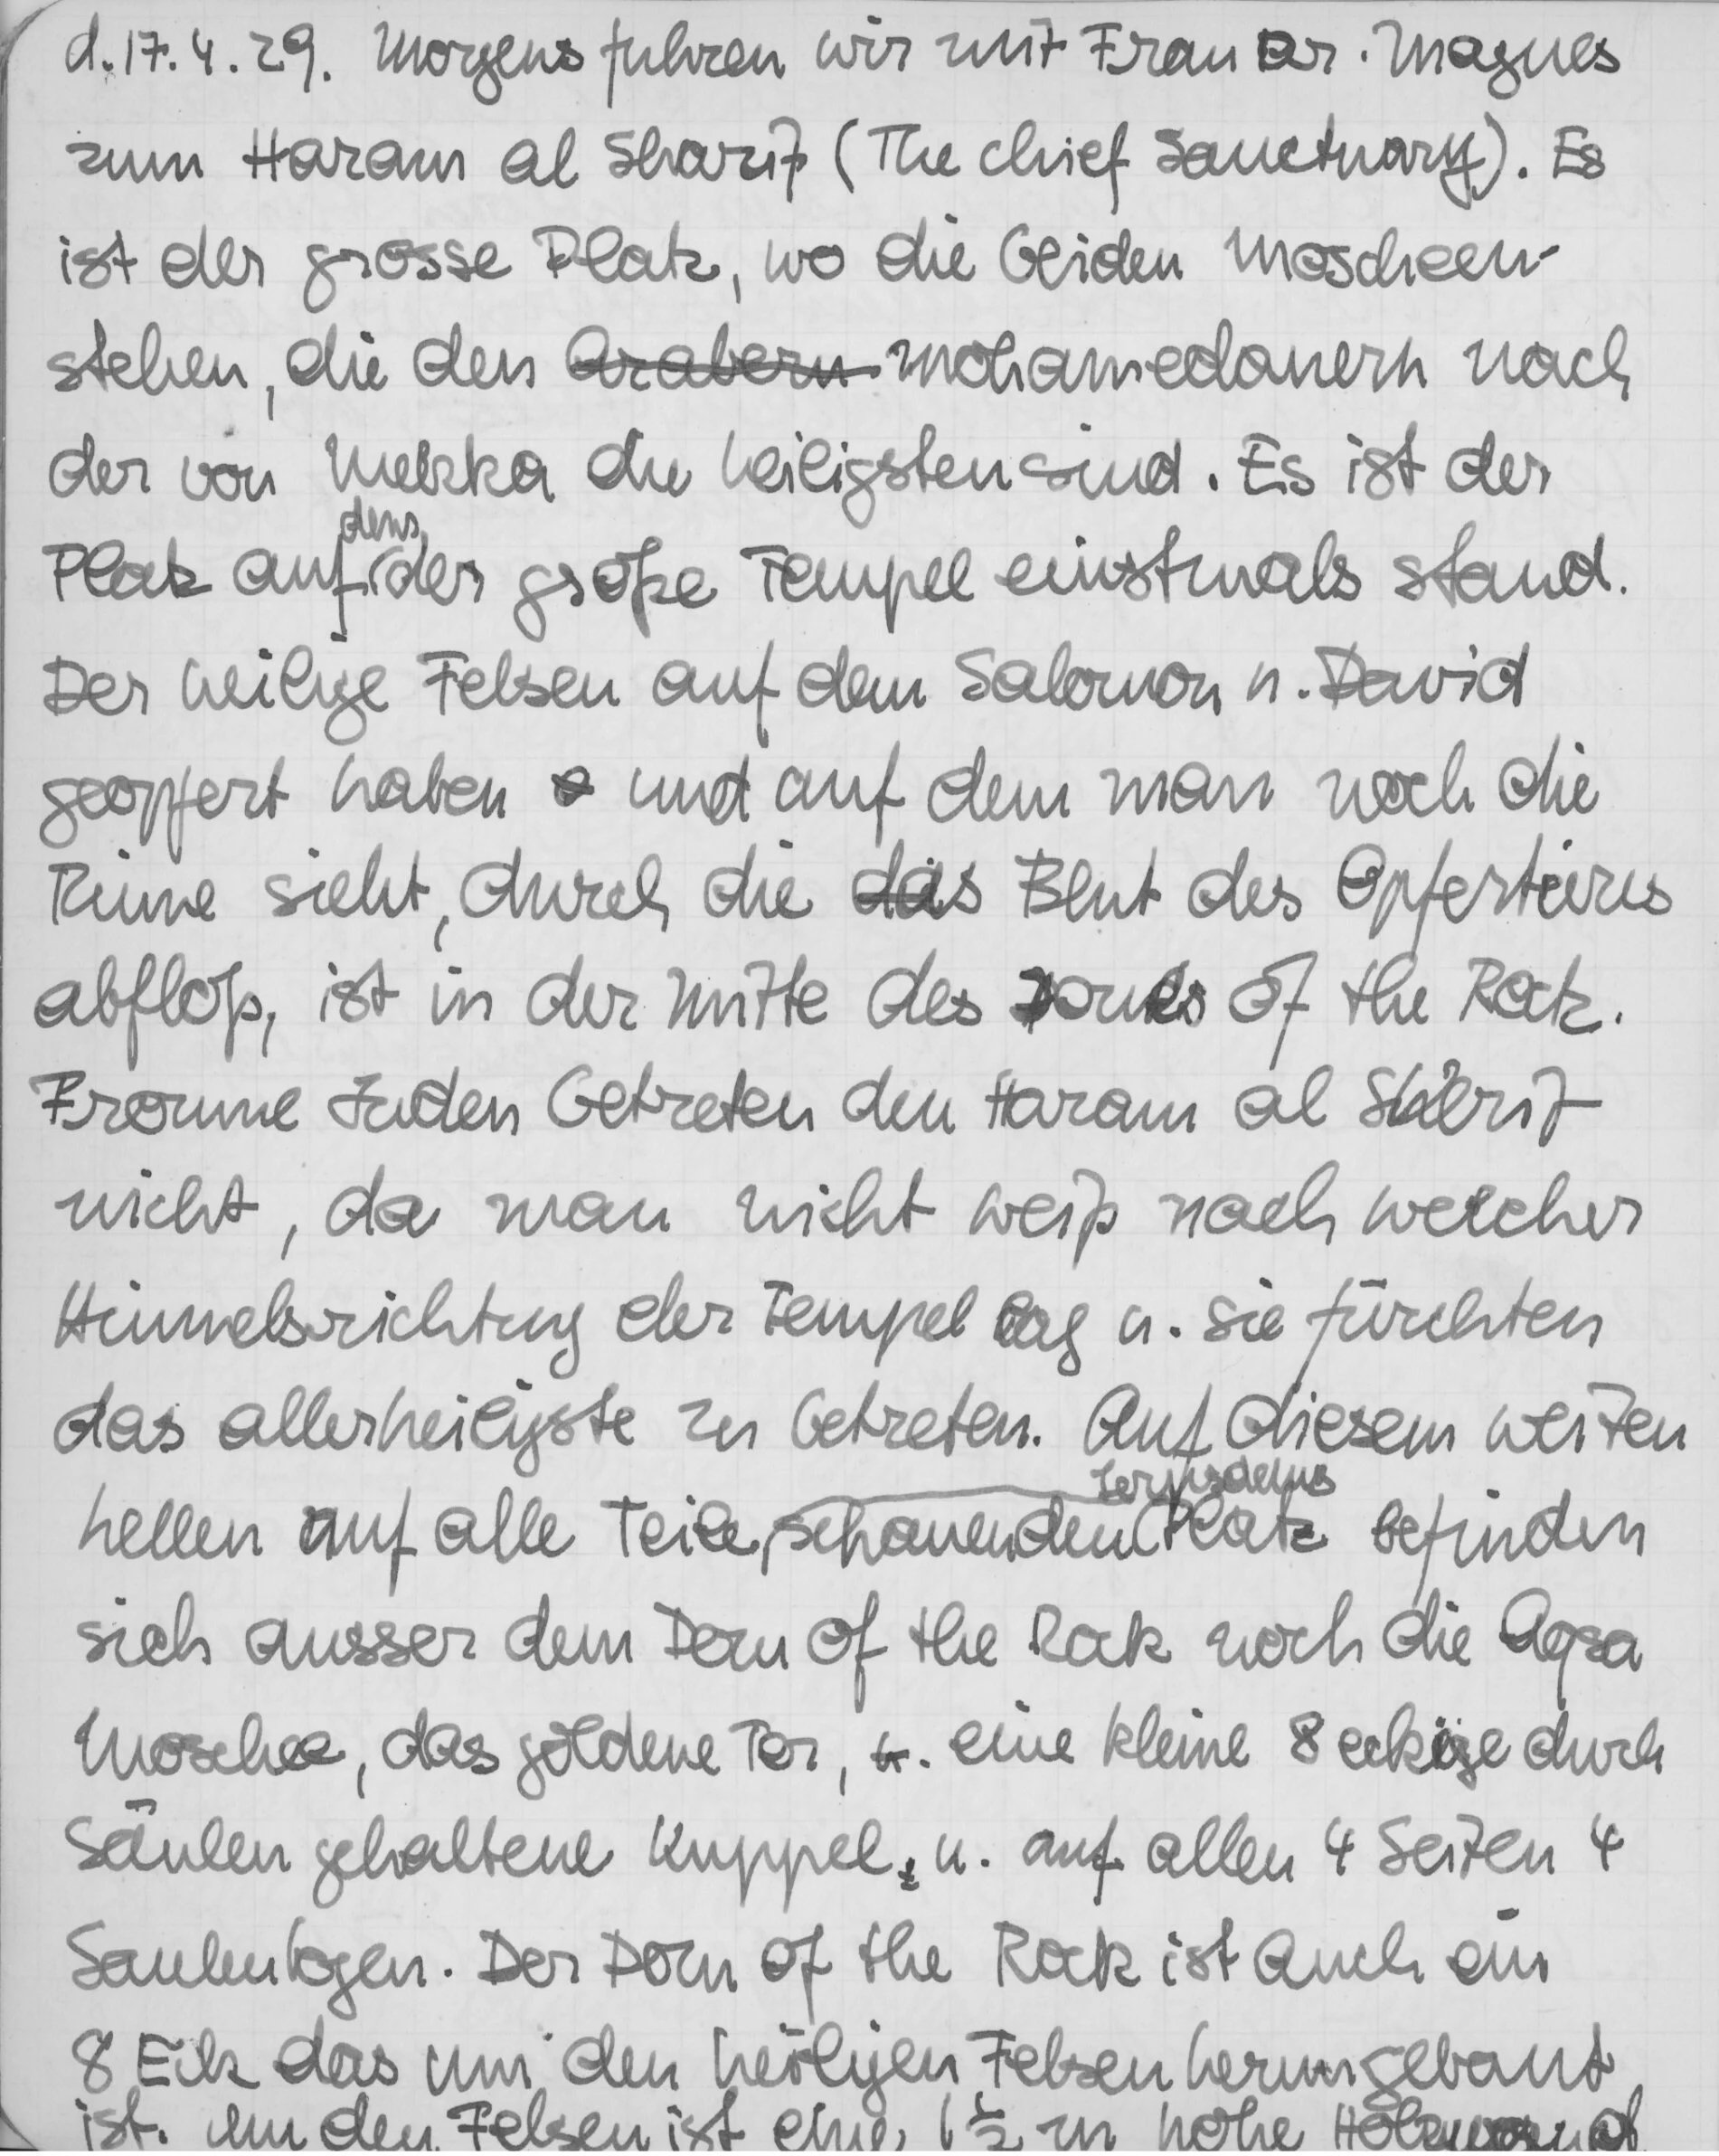 d. 17.4.29. Morgens fuhren wir mit Frau Dr. Magnes
zum Haram al Sharif (The chief Sanctuary). Es
ist der grosse Platz, wo die beiden Moscheen
stehen, die den Arabern Mohamedanern nach
der von Mekka die heiligsten sind. Es ist der
dem
Platz auf der große Tempel einstmals stand.
Der heilige Felsen auf dem Salomon u. David
geopfert haben und auf dem man noch die
Rinne sieht, durch die das Blut des Opfertieres
abfloß, ist in der Mitte des Domes of the Rock.
Fromme Juden betreten den Haram al Sherif
nicht, da man nicht weiß nach welcher
Himmelsrichtung der Tempel lag u. sie fürchten
das allerheiligste zu betreten. Auf diesem weiten
Jerusalems
hellen auf alle Teile, schauenden Platz befinden
sich ausser dem Dom of the Rock noch die Aqsa
Moschee, das goldene Tor, u. eine kleine 8 eckige durch
Säulen gehaltene Kuppel, u. auf allen 4 Seiten 4
Säulenbogen. Der Dom of the Rock ist auch ein
8 Eck das um den heiligen Felsen herumgebaut
ist. Um den Felsen ist eine 1½ m hohe